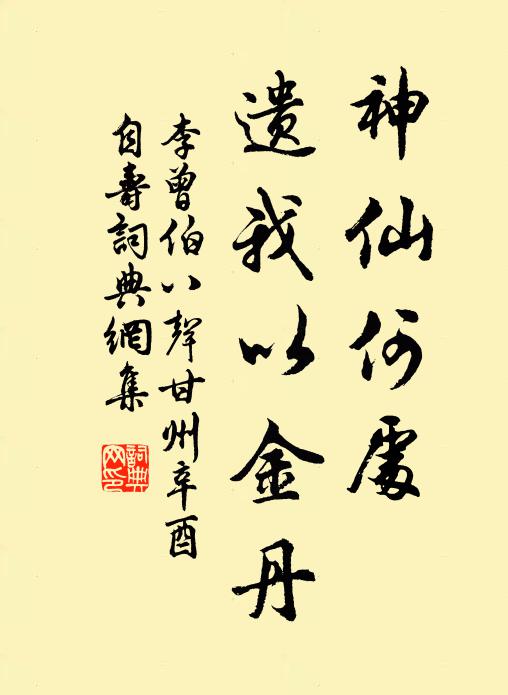 神仙何處
遗我以金丹
李曾伯八聲甘州辛酉
自壽詞典網集
詞典
网印